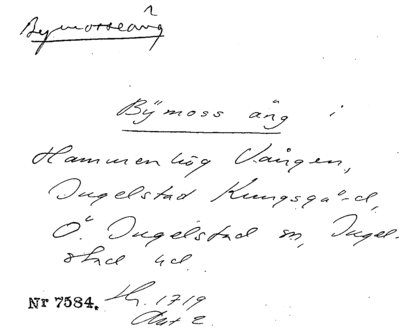 Bymosseäng
Bÿmoss äng i
Hammenhög Vången,
Ingelstad Kungsgård,
Ö. Ingelstad sn, Ingel-
stad hd.
Nr 7584. LM. 1719
Akt 2.